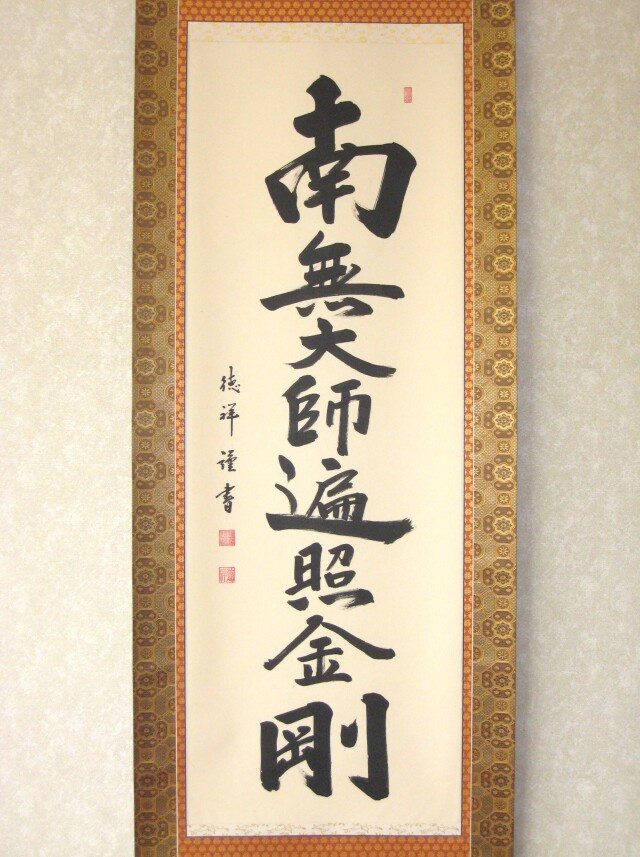 南無大師遍照金剛
徳祥謹書